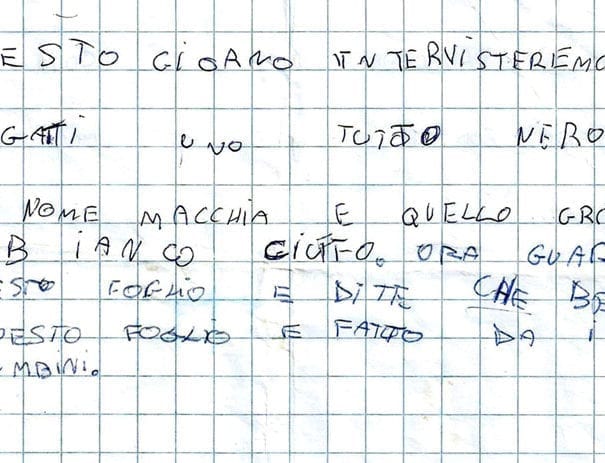 ESTO GIOANO INTERVISTEREMO
GATTI UNO TUTTO NERO
NOME MACCHIA E QUELLO GRO
BIANCO CIUFFO. ORA GUAR
ESTO FOGLIO E DITE CHE BE
DESTO FOGLIO E FATTO DA I
MBINI.